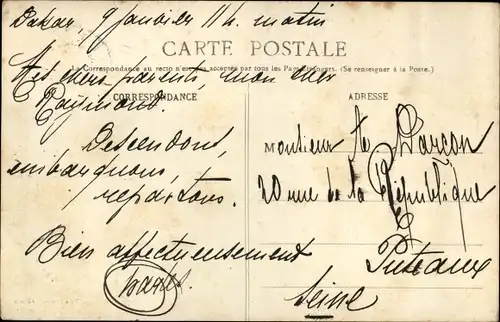 Dakar, 9 janvier 11 h. matin
CARTE POSTALE
La Correspondance au recto n'est pas acceptée par tous les Pays Étrangers. (Se renseigner à la Poste.)
Mes chers parents, mon cher
Raymond.
CORRESPONDANCE
Descendons,
embarquons,
repartons.
Bien affectueusement
ADRESSE
Monsieur
20 rue de la République
Puteaux
Seine